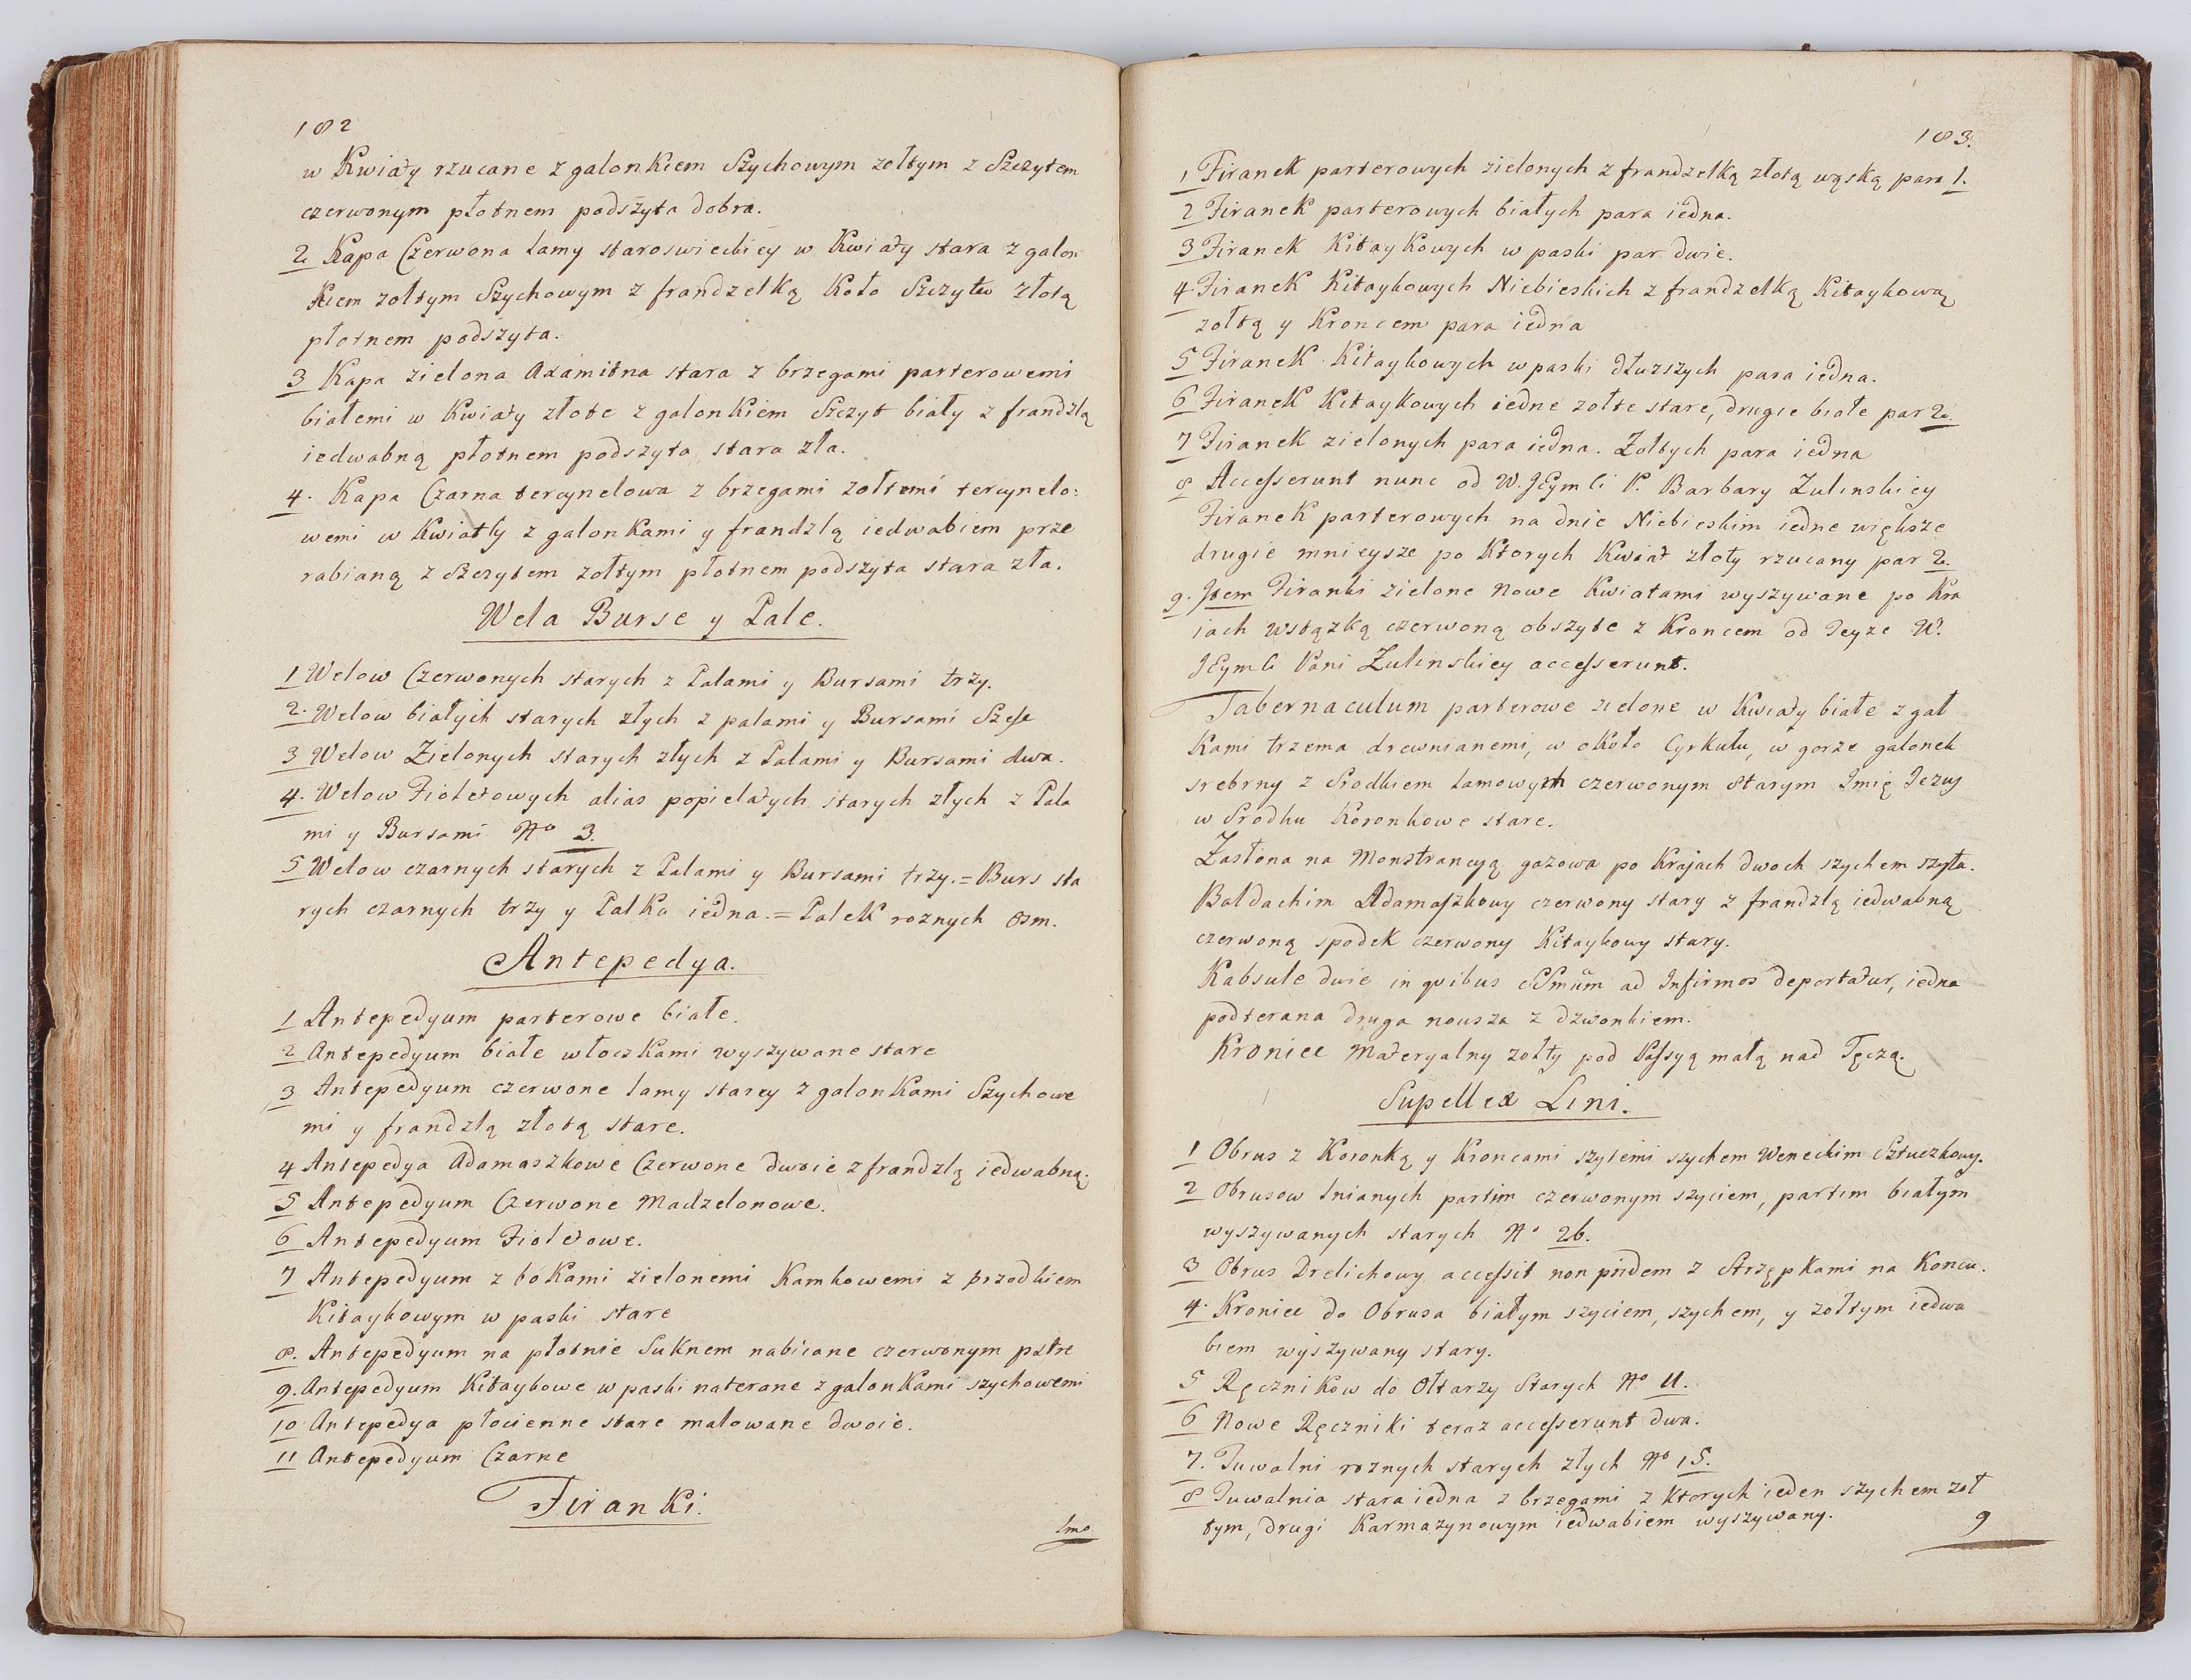 182
w Kwiaty rzucane z galonkiem Szychowym zołtym z Szczytem
czerwonym płotnem podszyta dobra.
2 Kapa Czerwona lamy staroswieckiey w Kwiaty stara z galon
kiem zołtym Szychowym z frandzelką Koło Szczytu złotą
płotnem podszyta.
3 Kapa zielona Axamitna stara z brzegami parterowemi
białemi w Kwiaty złote z galonkiem Szczyt biały z frandzlą
iedwabną płotnem podszyta stara zła.
4. Kapa Czarna tercynelowa z brzegami zołtemi tercynelo:
wemi w Kwiatły z galonkami y frandzlą iedwabiem prze
rabianą z Szczytem zołtym płotnem podszyta stara zła.
Wela Burse y Pale.
1 Welow Czerwonych starych z Palami y Bursami trzy.
2. Welow białych starych złych z palami y Bursami Szesc
3 Welow Zielonych starych złych z Palami y Bursami dwa.
4. Welow Fioletowych alias popielatych starych złych z Pala
mi y Bursami No 3.
5 Welow czarnych starych z Palami y Bursami trzy.= Burs sta
rych czarnych trzy y Palka iedna.= Palek roznych osm.
Antepedya.
1 Antepedyum parterowe białe.
2 Antepedyum białe włoczkami wyszywane stare
3 Antepedyum czerwone lamy starey z galonkami Szychowe
mi y frandzlą złotą stare.
4 Antepedya Adamaszkowe Czerwone dwoie z frandzlą iedwabną.
5 Antepedyum Czerwone Madzelonowe.
6 Antepedyum Fioletowe.
7 Antepedyum z bokami zielonemi Kamkowemi z przodkiem
Kitaykowym w paski stare
8. Antepedyum na płotnie Suknem nabiiane czerwonym pstre
9. Antepedyum Kitaykowe w paski naterane z galonkami szychowemi
10 Antepedya płocienne stare malowane dwoie.
11 Antepedyum Czarne
Firanki.
1mo
183.
1 Firanek parterowych zielonych z frandzelką złotą wąską para 1.
2 Firanek parterowych białych para iedna.
3 Firanek Kitaykowych w paski par dwie.
4 Firanek Kitaykowych Niebieskich z frandzelką Kitaykową
zołtą y Kroncem para iedna
5 Firanek Kitaykowych w paski dłuzszych para iedna.
6 Firanek Kitaykowych iedne zołte stare, drugie białe par 2.
7 Firanek zielonych para iedna. Zołtych para iedna
8 Accesserunt nunc od W. JEymCi P. Barbary Zulinskiey
Firanek parterowych na dnie Niebieskim iedne większe
drugie mnieysze po Ktorych Kwiat złoty rzucany par 2.
9. Jtem Firanki zielone nowe Kwiatami wyszywane po Kra
iach wstązką czerwoną obszyte z Kroncem od Teyze W.
JEymCi Pani Zulinskiey accesserunt.
Tabernaculum parterowe zielone w Kwiaty białe z gał
kami trzema drewnianemi, w około Cyrkułu, w gorze galonek
srebrny z Srodkiem lamowym czerwonym starym Imię Jezus
w Srodku Koronkowe stare.
Zasłona na Monstrancyą gazowa po Krajach dwoch szychem szyta.
Baldachim Adamaszkowy czerwony stary z frandzlą iedwabną
czerwoną spodek czerwony Kitaykowy stary.
Kabsule dwie in quibus SSmum ad Infirmos deportatur, iedna
podterana druga nousza z dzwonkiem.
Kroniec Materyalny zołty pod Passyą małą nad Tęczą.
Supellex Lini.
1 Obrus z Koronką y Kroncami szytemi szychem Weneckim Sztuczkowy.
2 Obrusow lnianych partim czerwonym szyciem, partim białym
wyszywanych starych No 26.
3 Obrus Drelichowy accessit non pridem z Strzępkami na Koncu.
4. Kroniec do Obrusa białym szyciem, szychem, y zołtym iedwa
biem wyszywany stary.
5 Ręcznikow do Ołtarzy Starych No 11.
6 Nowe Ręczniki teraz accesserunt dwa.
7. Tuwalni roznych starych złych No 15.
8 Tuwalnia stara iedna z brzegami z Ktorych ieden szychem zoł
tym, drugi Karmazynowym iedwabiem wyszywany.
9